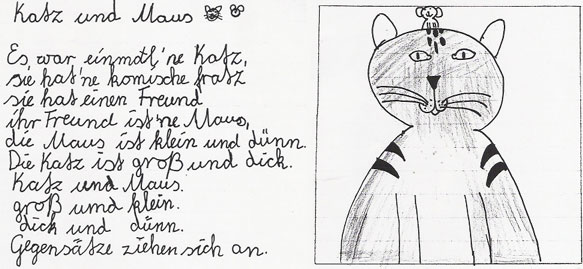 Katz und Maus
Es war einmal 'ne Katz,
sie hat 'ne komische fratz
sie hat einen Freund
ihr Freund ist 'ne Maus,
die Maus ist klein und dünn.
Die Katz ist groß und dick.
Katz und Maus.
groß und klein.
dick und dünn.
Gegensätze ziehen sich an.